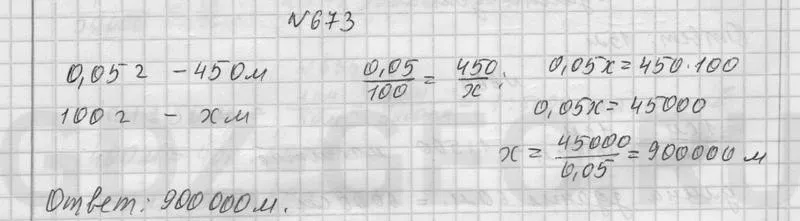 №673
0,05 г – 450 м
100 г – х м
0,05/100 = 450/х ;
0,05х = 450·100
0,05х = 45000
х = 45000/0,05 = 900000 м
Ответ: 900 000 м.